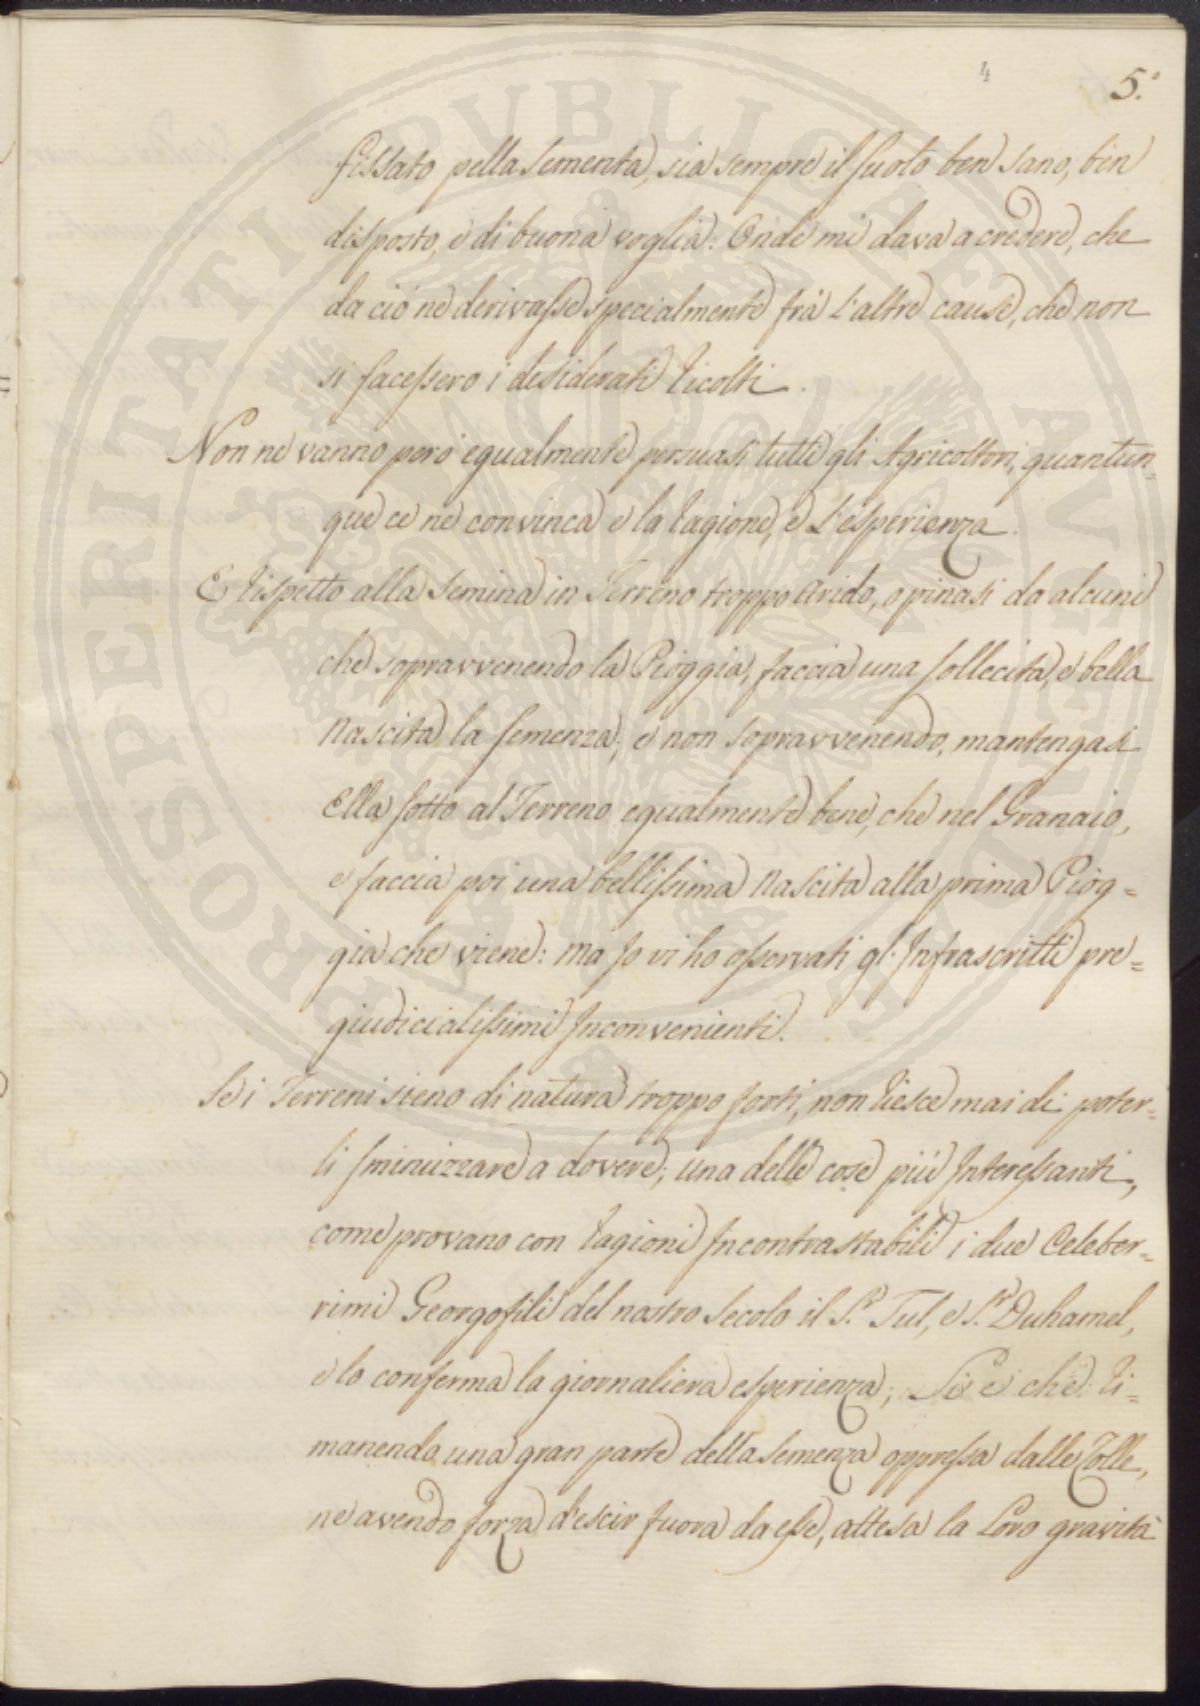 4
5.º
fissato pella sementa, sia sempre il suolo ben sano, ben
disposto, e di buona voglia: Onde mi dava a credere, che
da ciò ne derivasse specialmente frà l'altre cause, che non
si facessero i desiderati ricolti.
Non ne vanno però egualmente persuasi tutti gli Agricoltori, quantun-
que ce ne convinca e la ragione, e l'esperienza.
E rispetto alla semina in Terreno troppo arido, opinasi da alcuni
che sopravvenendo la Pioggia, faccia una sollecita, e bella
nascita la semenza; e non sopravvenendo, mantengasi
Ella sotto al Terreno egualmente bene, che nel Granaio,
e faccia poi una bellissima nascita alla prima Piog=
gia che viene: ma Io vi ho osservati gl'Infrascritti pre=
giudicialissimi Inconvenienti.
Se i Terreni sieno di natura troppo forti, non riesce mai di poter=
li sminuzzare a dovere; una delle cose più Interessanti,
come provano con ragioni Incontrastabili i due Celeber=
rimi Georgofili del nostro Secolo il S.r Tul, e S.r Duhamel,
e lo conferma la giornaliera esperienza; Si è che ri=
manendo una gran parte della semenza oppressa dalle Zolle,
ne avendo forza d'escir fuora da esse, attesa la Loro gravità
PROSPERITATI PUBLICAE AUGENDAE